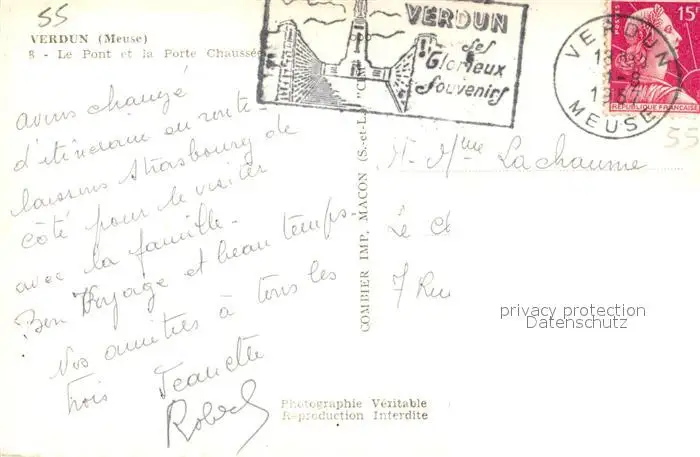 55
VERDUN (Meuse)
8 - Le Pont et la Porte Chaussée
VERDUN
ses
Glorieux
Souvenirs
VERDUN
18H
1957
MEUSE
15F
REPUBLIQUE FRANÇAISE
55
avons changé
d'itinéraire en route -
laissons Strasbourg de
côté pour le visiter
avec la famille -
Bon Voyage et beau temps.
Nos amitiés à tous les
trois Jeanette
Robert
COMBIER IMP. MACON (S.-et-L.)
Mme Lachaume
Le
7 Rue
privacy protection
Datenschutz
Photographie Véritable
Reproduction Interdite